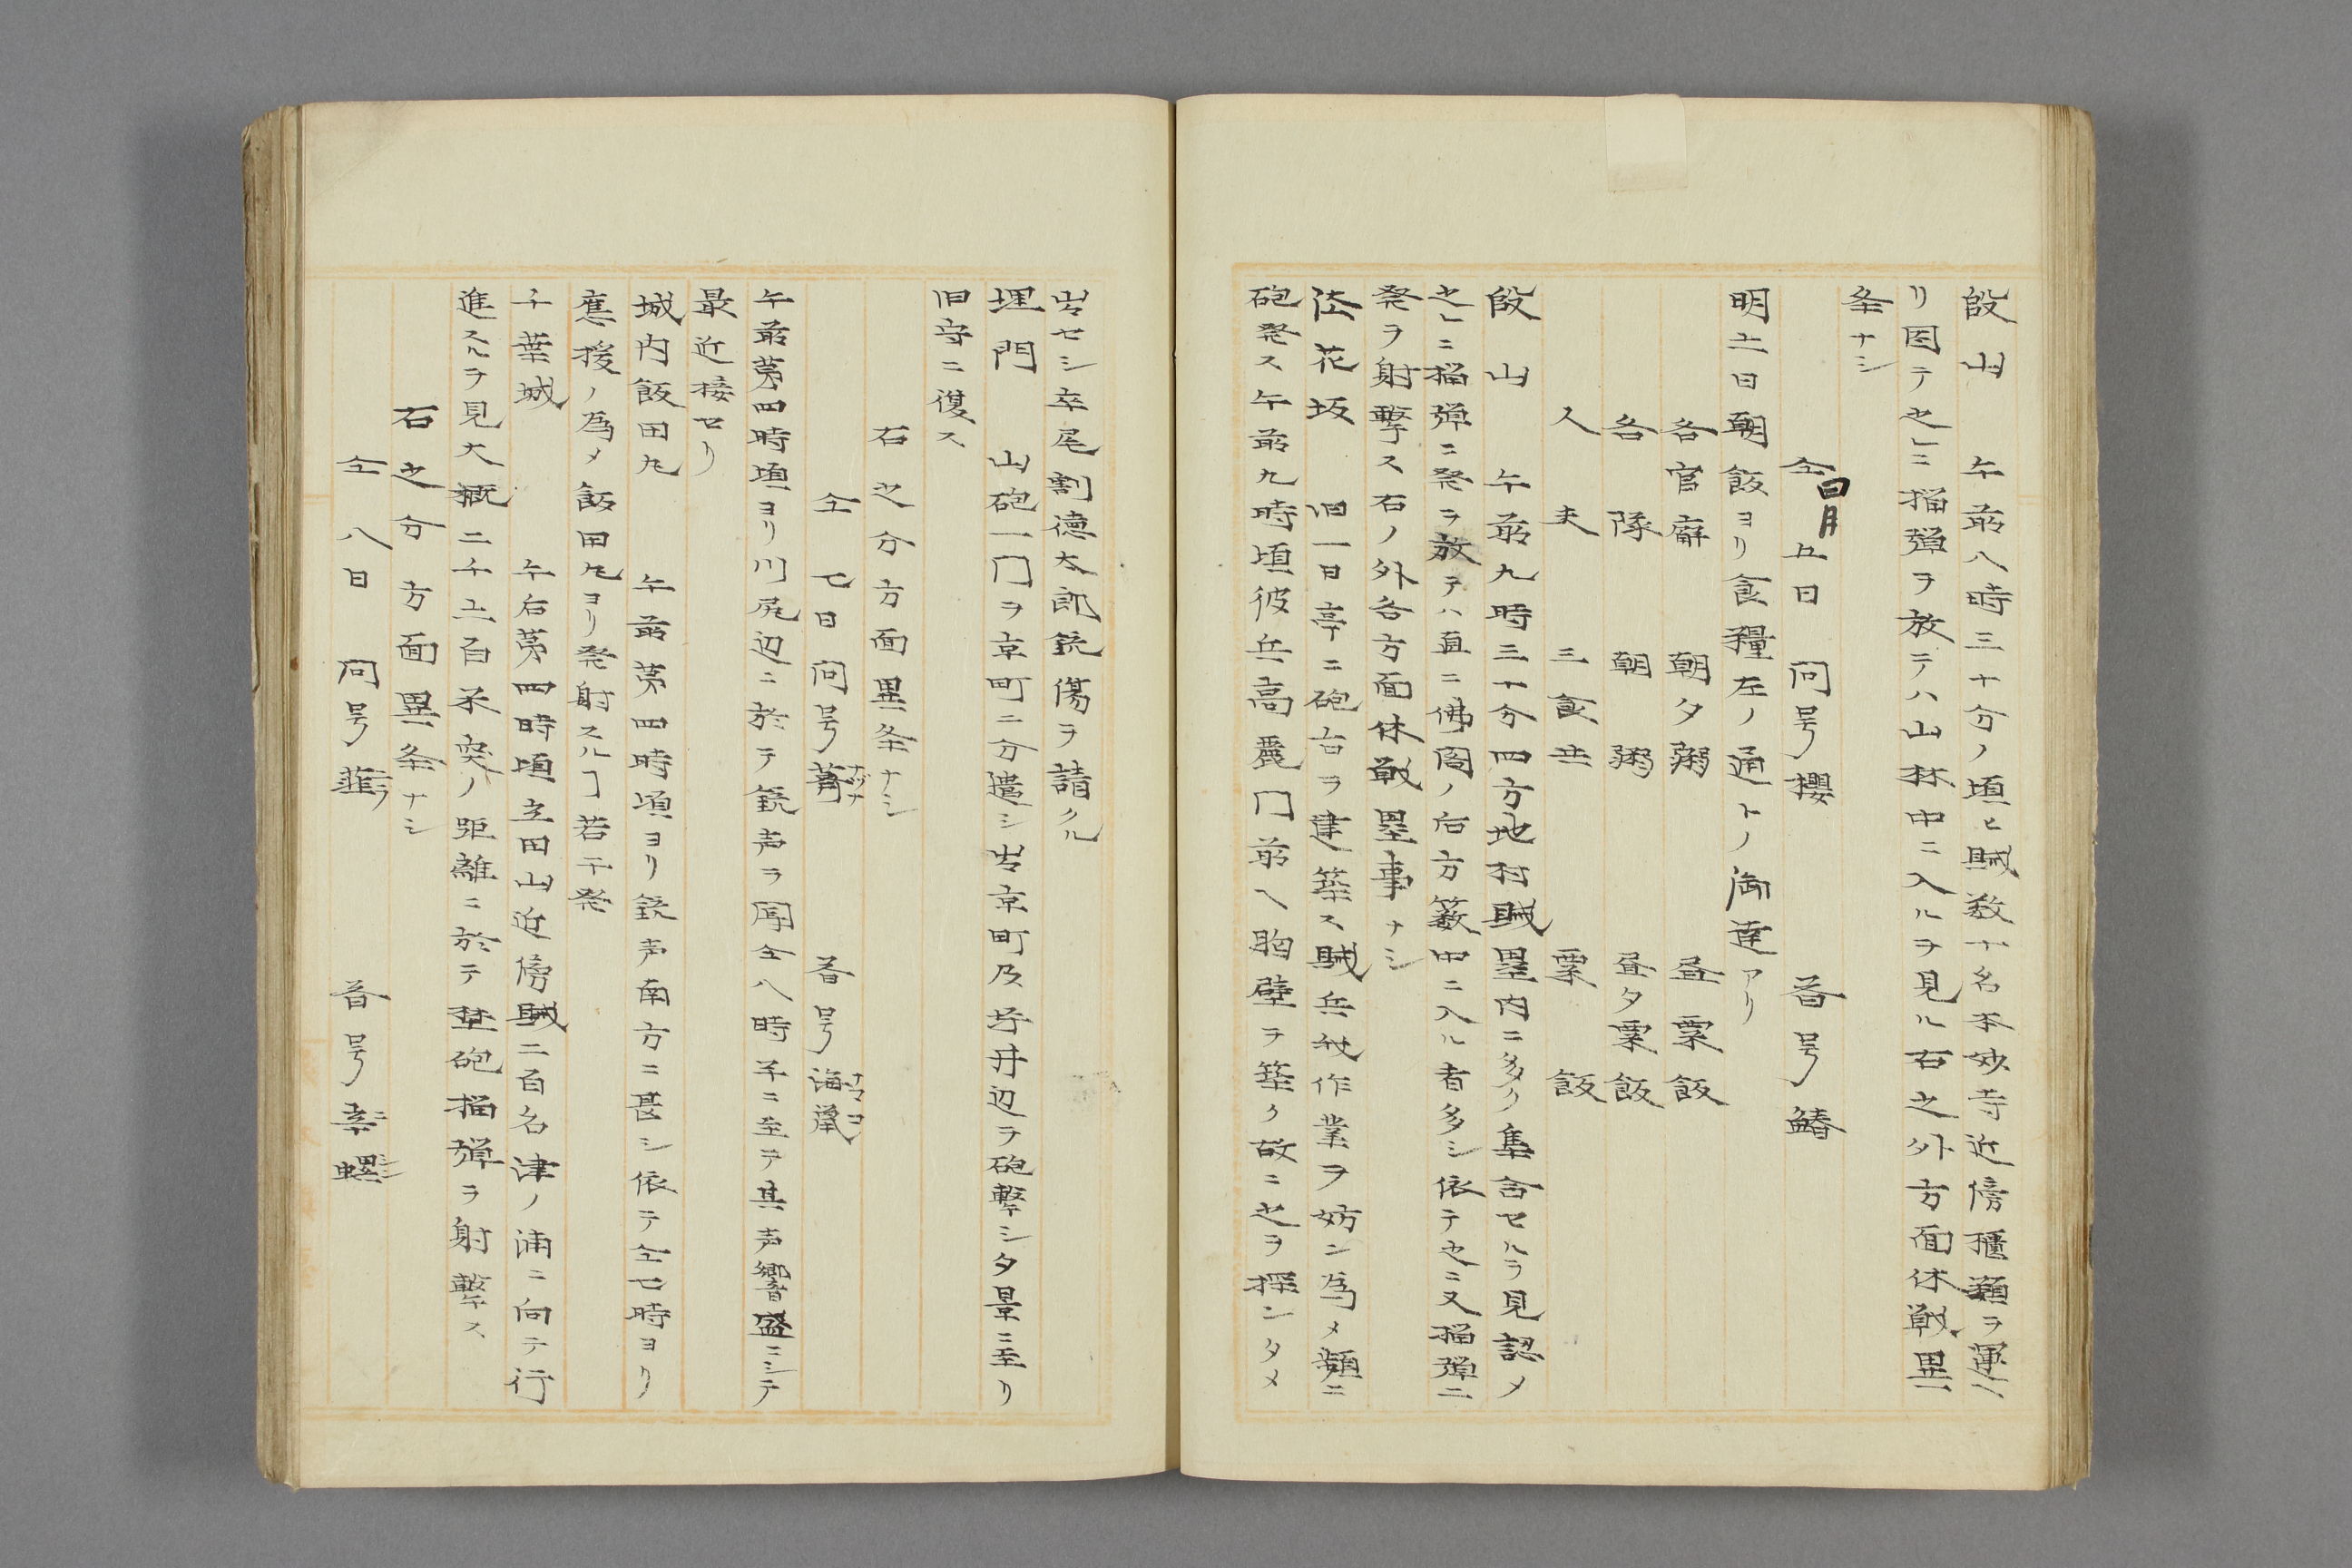 段山　午前八時三十分ノ頃ヒ賊数十名本妙寺近傍櫃類ヲ運ヘ
リ因テ之レニ榴弾ヲ放テハ山林中ニ入ルヲ見ル右之外方面休戦異
条ナシ
仝四月五日　問号櫻　答号鰆
明六日朝飯ヨリ食糧左ノ通トノ御達アリ
各官廨　朝夕粥　昼粟飯
各隊　朝粥　昼夕粟飯
人夫　三食共　粟飯
段山　午前九時三十分四方地村賊塁内ニ多ク集合セルヲ見認メ
之レニ榴弾二発ヲ放テハ直ニ佛閣ノ后方籔中ニ入ル者多シ依テ之ニ又榴弾二
発ヲ射撃ス右ノ外各方面休戦異事ナシ
法花坂　旧一日亭ニ砲台ヲ建築ス賊兵我作業ヲ妨ン為メ頻ニ
砲発ス午前九時頃彼兵高麗門前ヘ胸壁ヲ築ク故ニ之ヲ探ンタメ
出セシ卒尾割徳太郎銃傷ヲ請クル
埋門　山砲一門ヲ京町ニ分遣シ出京町及坪井辺ヲ砲撃シタ景ニ至リ
旧守ニ復ス
右之分方面異条ナシ
仝七日　問号薺ナヅナ　答号海鞏ナマコ
午前第四時頃ヨリ川尻辺ニ於テ銃声ヲ聞仝八時半ニ至テ其声響盛ニシテ
最近接セリ
城内飯田丸　午前第四時頃ヨリ銃声南方ニ甚シ依テ仝七時ヨリ
應援ノ為メ飯田丸ヨリ発射スルヿ若干発
千葉城　午后第四時頃立田山近傍賊二百名津ノ浦ニ向テ行
進スルヲ見大概二千五百米突ノ距離ニ於テ埜砲榴弾ヲ射撃ス
右之分方面異条ナシ
仝八日　問号韮ニラ　答号辛螺ニシ